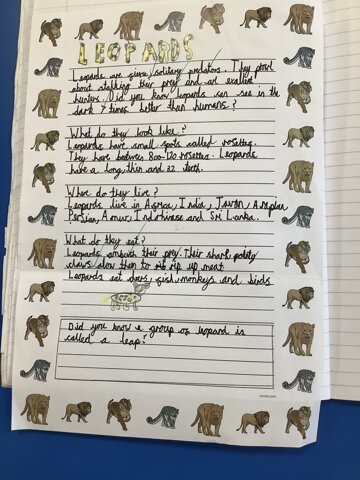 LEOPARDS
Leopards are fierce, solitary predators. They prowl
about stalking their prey and are excellent
hunters. Did you know leopards can see in the
dark 7 times better than humans?
What do they look like?
Leopards have small spots called rosettes.
They have between 800-120 rosettes. Leopards
have a long, thin and 32 teeth.
Where do they live?
Leopards live in Africa, India, Javan,
Persian, Amur, Indochinese and Sri Lanka.
What do they eat?
Leopards ambush their prey. Their sharp,
claws alow them to rip up meat
Leopards eat deers, fish, monkeys and birds
Did you know a group of leopard is
called a leap?